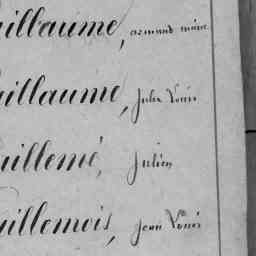 uillaume, armand
uillaume, Jules Louis
uillemé, Julien
uillemois, Jean Louis